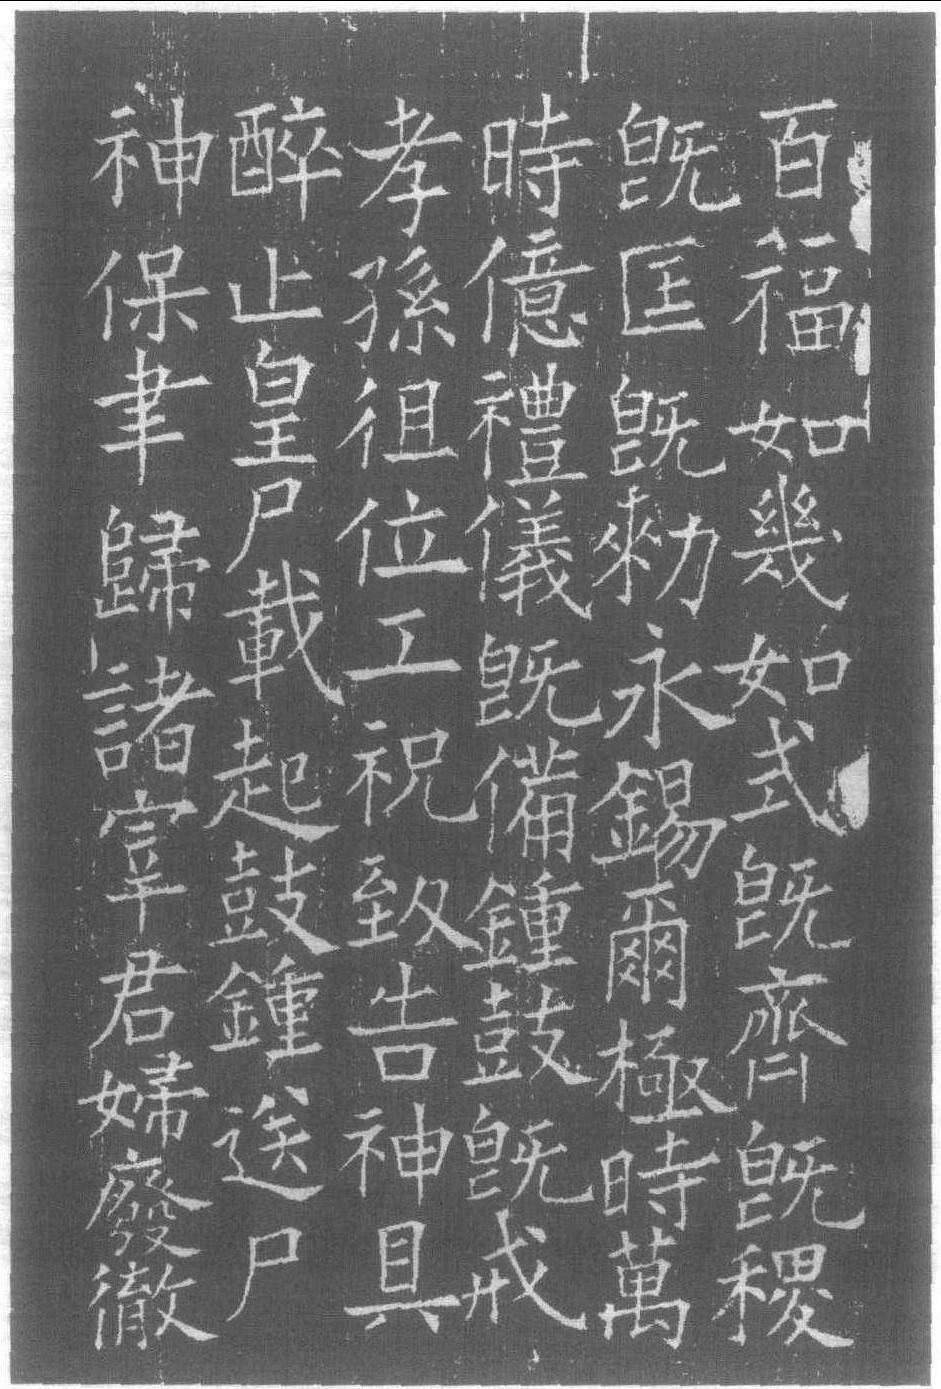 百福如幾如式既齊既稷
既匡既勑永錫爾極時萬
時億禮儀既備鍾鼓既戒
孝孫徂位工祝致告神具
醉止皇尸載起鼓鍾送尸
神保聿歸諸宰君婦廢徹